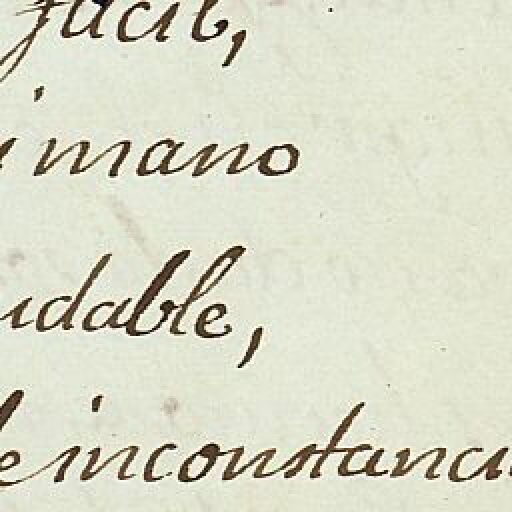 facil,
i mano
udable,
le inconstanci